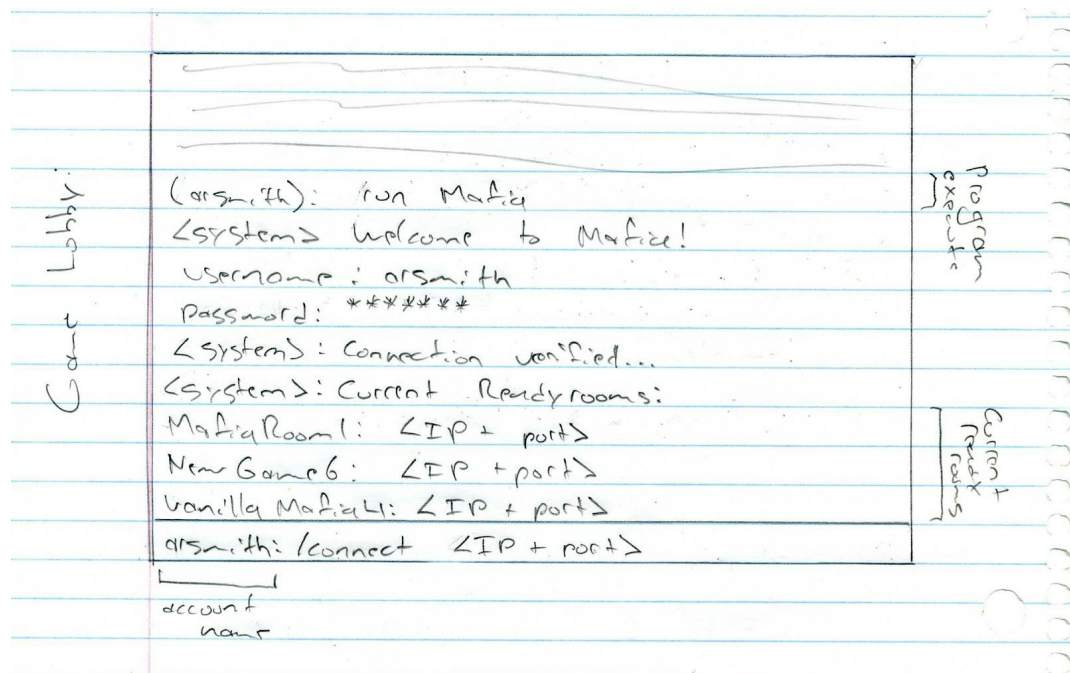 Game Lobby
(arsmith): run Mafia
<system> Welcome to Mafia!
username: arsmith
password: *******
<system>: Connection verified...
<system>: Current Readyrooms:
MafiaRoom1: <IP + port>
NewGame6: <IP + port>
Vanilla Mafia4: <IP + port>
arsmith: /connect <IP + port>
account
name
program
execute
Current
ready
rooms